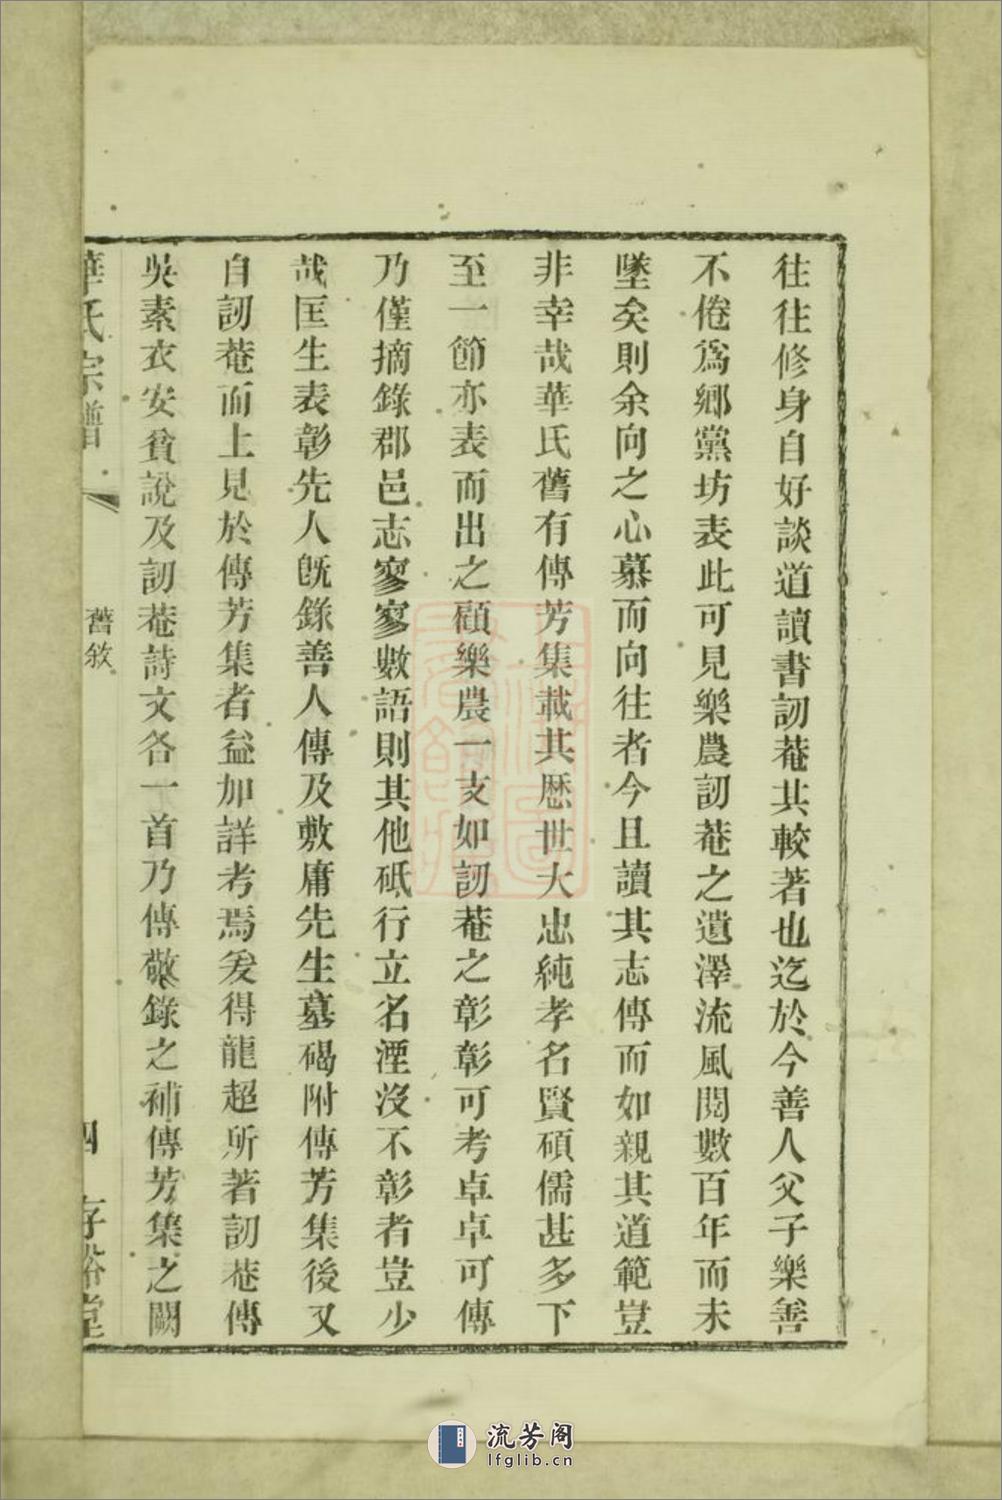 往往修身自好談道讀書訒菴其較著也迄於今善人父子樂善
不倦爲鄉黨坊表此可見樂農訒菴之遺澤流風閱數百年而未
墜矣則余向之心慕而向往者今且讀其志傳而如親其道範豈
非幸哉華氏舊有傳芳集載其歷世大忠純孝名賢碩儒甚多下
至一節亦表而出之顧樂農一支如訒菴之彰彰可考卓卓可傳
乃僅摘錄郡邑志寥寥數語則其他砥行立名湮沒不彰者豈少
哉匡生表彰先人既錄善人傳及敷庸先生墓碣附傳芳集後又
自訒菴而上見於傳芳集者益加詳考焉爰得龍超所著訒菴傳
吳素衣安貧說及訒菴詩文各一首乃傳敬錄之補傳芳集之闕
華氏宗譜
舊敘
四
存裕堂
流芳阁
lfglib.cn